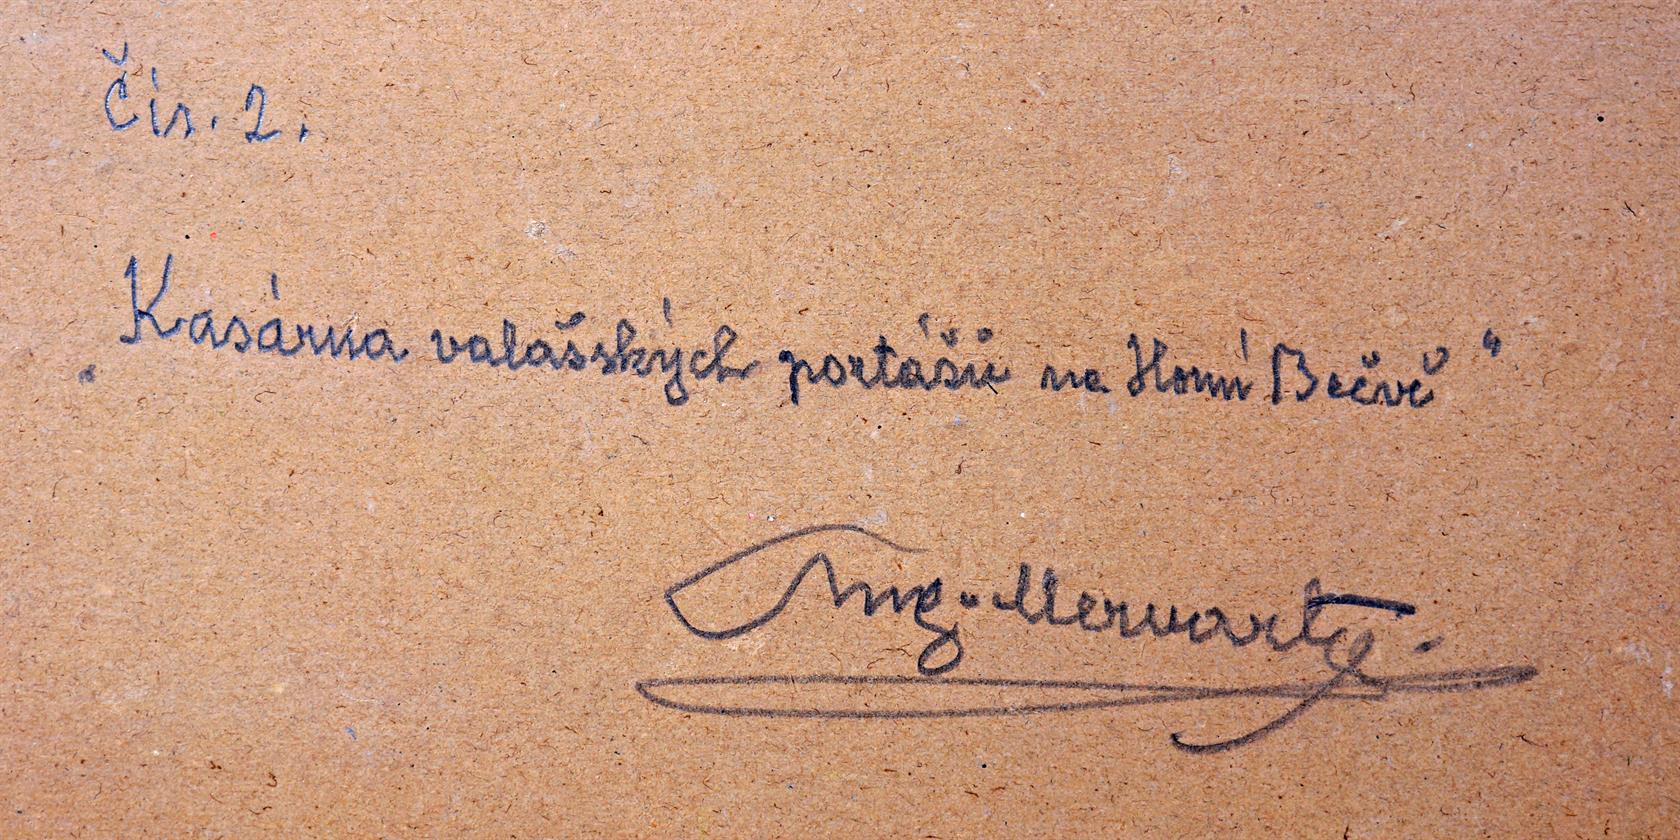 Čís. 2.
„Kasárna valašských portášů na Horní Bečvě“
Aug. Mervart.